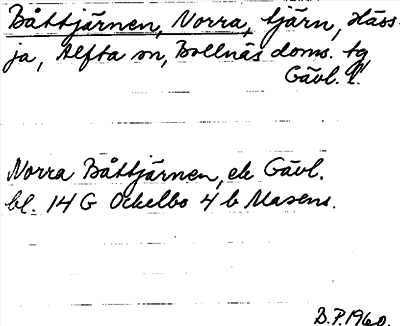 Båttjärnen, Norra, tjärn, Häss-
ja, Alfta sn, Bollnäs doms. tg
Gävl. l.
Norra Båttjärnen, ek Gävl.
bl. 14 G Ockelbo 4 b Masens.
B.P. 1960.